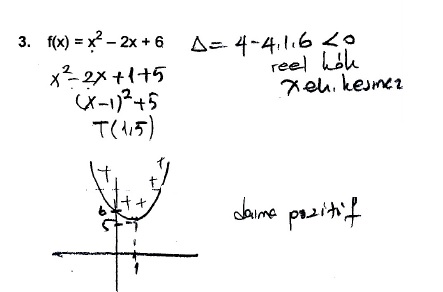 3. f(x) = x² – 2x + 6 Δ = 4-4.1.6 <0
reel kök
x ek. kesmez
x²-2x+1+5
(x-1)²+5
T(1,5)
+ +
+
+ +
6
5
1
daima pozitif